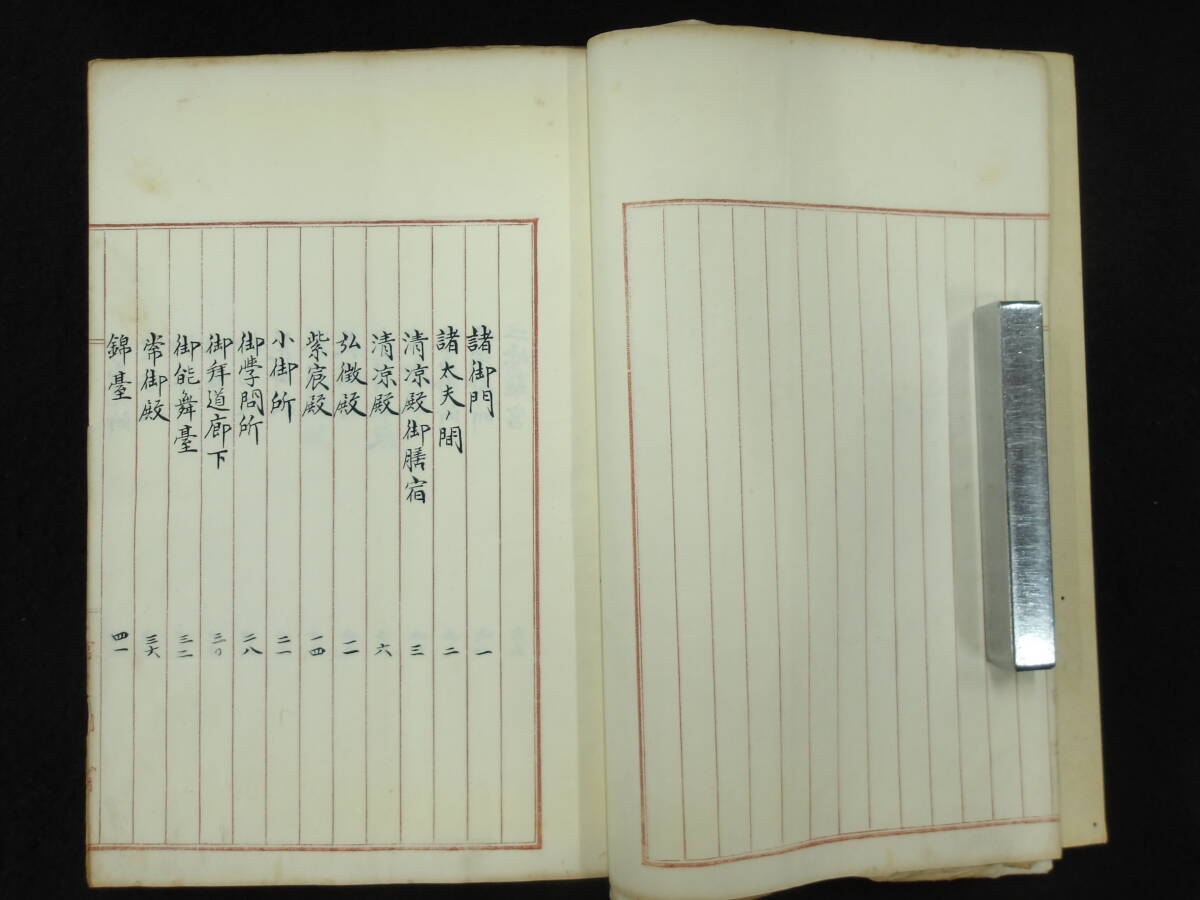 諸御門 一
諸太夫ノ間 二
清凉殿御膳宿 三
清凉殿 六
弘徴殿 一一
紫宸殿 一四
小御所 二一
御學問所 二八
御拜道廊下 三〇
御能舞臺 三二
常御殿 三六
錦臺 四一